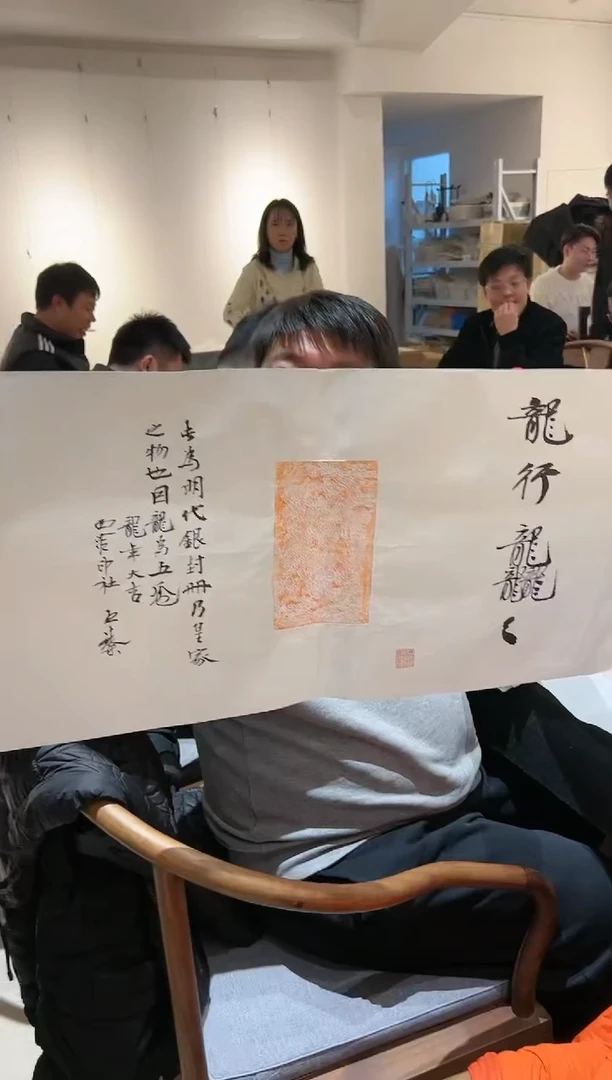 龍行龘〻
此為明代銀封冊乃皇家
之物也因龍為五爪
龍年大吉
印社